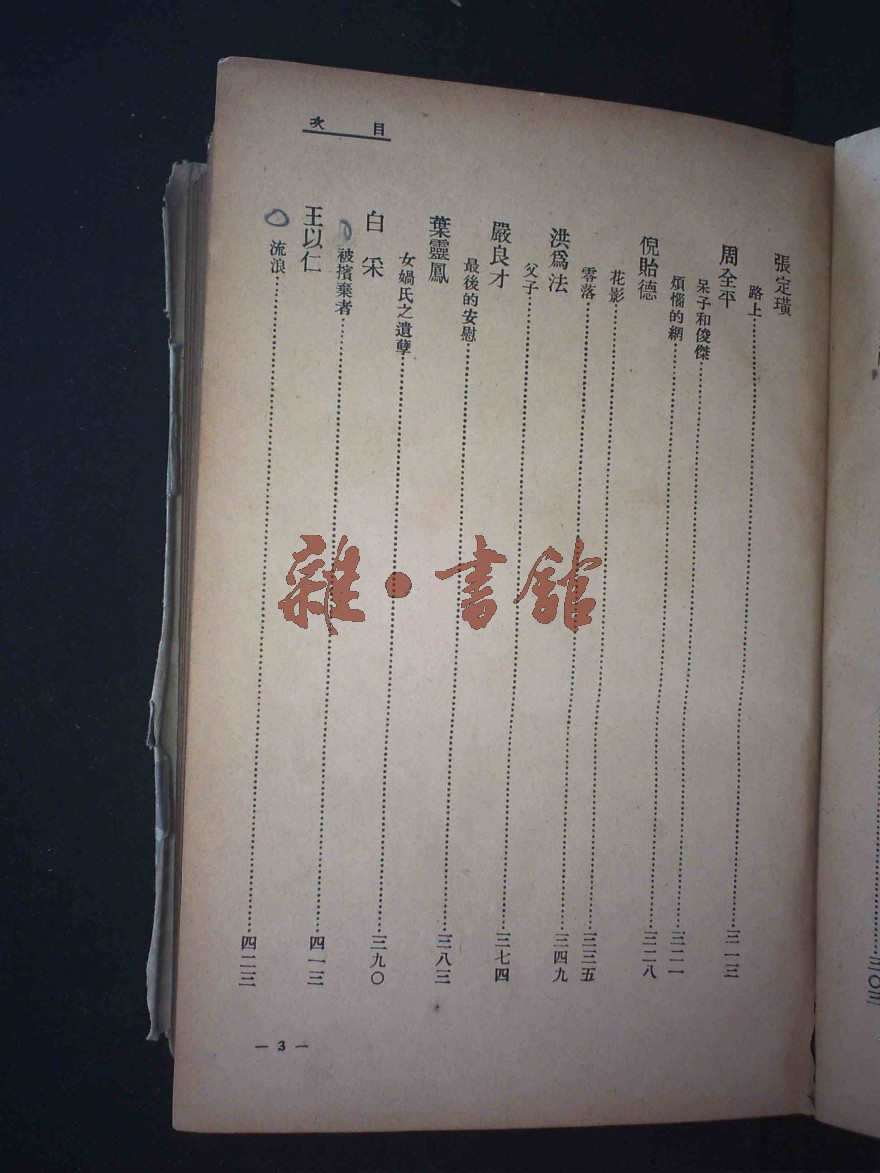 目次
張定璜
路上……三一三
周全平
呆子和俊傑……三二一
煩惱的網……三二八
倪貽德
花影……三三五
零落……三四九
洪為法
父子……三七四
嚴良才
最後的安慰……三八三
葉靈鳳
女媧氏之遺孽……三九〇
白采
被擯棄者……四一三
王以仁
流浪……四二三
— 3 —
三〇三
雜·書館